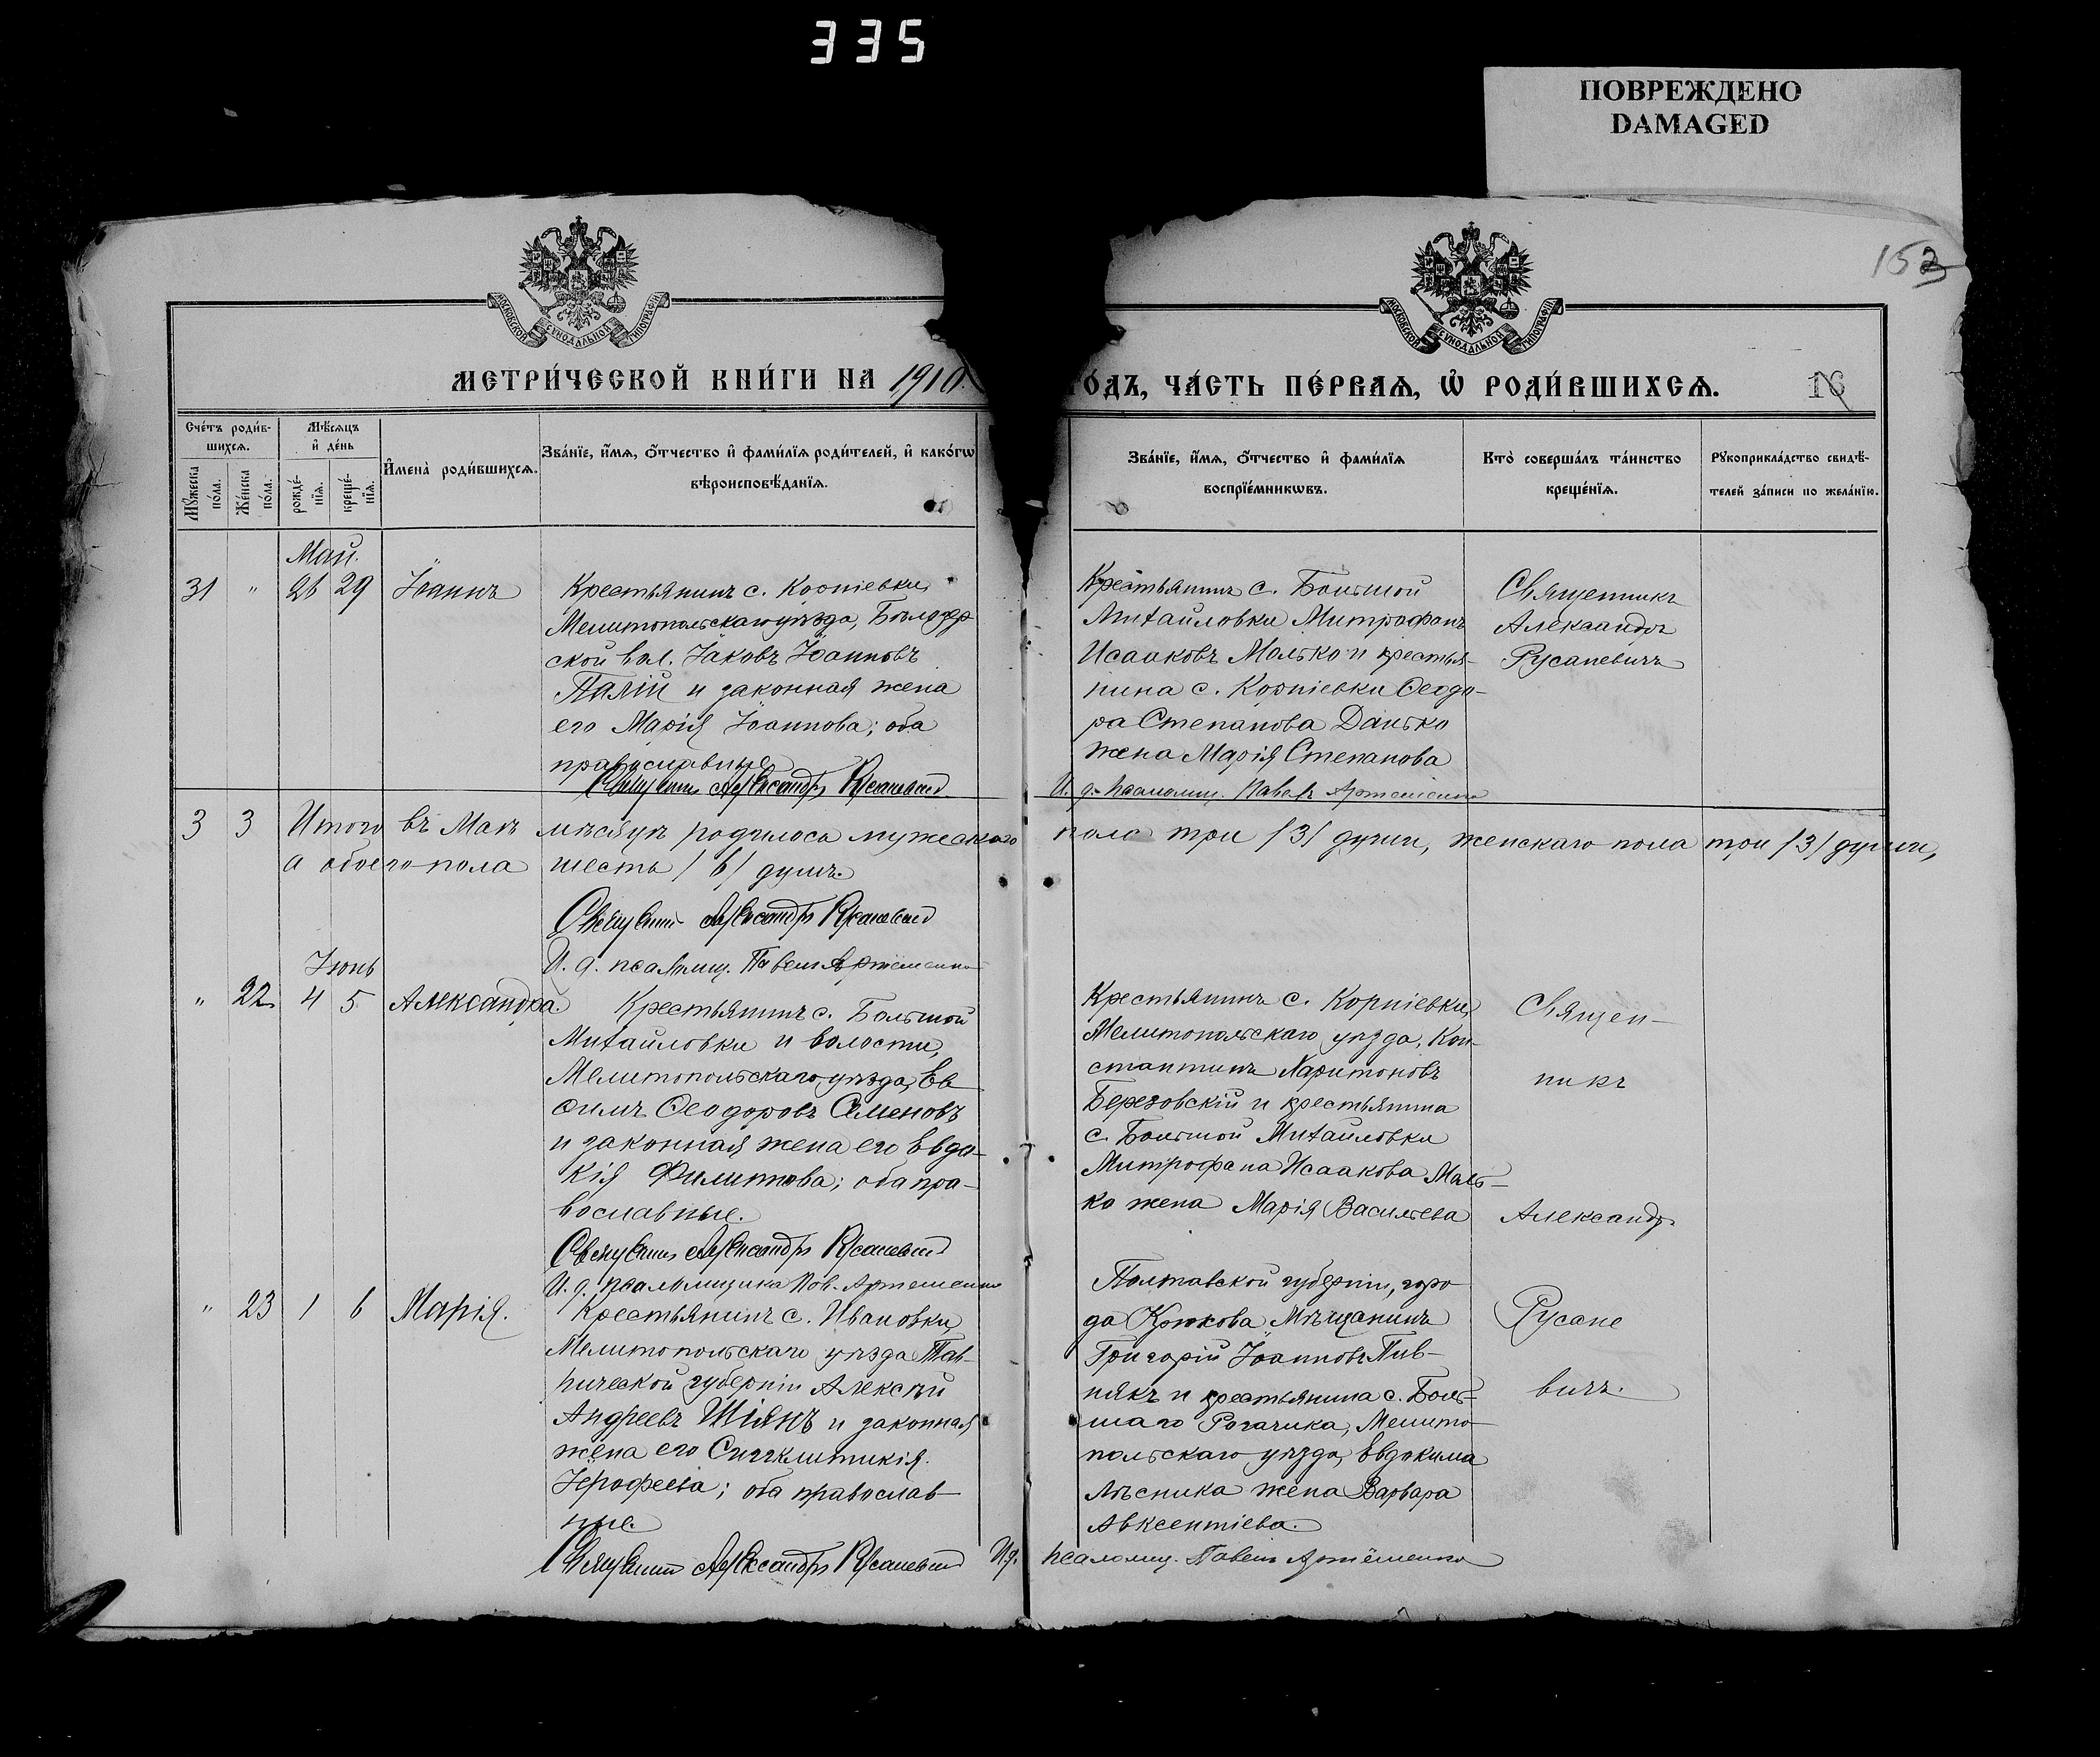 335
ПОВРЕЖДЕНО
DAMAGED
153
МОСКОВСКОЙ СѴНОДАЛЬНОЙ ТИПОГРАФІИ
МОСКОВСКОЙ СѴНОДАЛЬНОЙ ТИПОГРАФІИ
МЕТРИ́ЧЕСКОЙ КНИ́ГИ НА 1910.
ГО́ДЪ, ЧА́СТЬ ПЕ́РВАѦ, Ѡ҆ РОДИ́ВШИХСѦ.
16
Сче́тъ роди́в-
шихсѧ.
Мѣ́сѧцъ
и҆ де́нь
Мꙋ́жеска
по́ла.
Же́нска
по́ла.
рожде́-
нїѧ.
креще́-
нїѧ.
И҆мена̀ роди́вшихсѧ.
Зва́нїе, и҆́мѧ, ѻ҆́тчество и҆ фами́лїѧ роди́телей, и҆ како́гѡ
вѣроисповѣ́данїѧ.
Зва́нїе, и҆́мѧ, ѻ҆́тчество и҆ фами́лїѧ
воспрїе́мникѡвъ.
Кто̀ соверша́лъ та́инство
креще́нїѧ.
Рꙋкоприкла́дство свидѣ́-
телей за́писи по жела́нїю.
Май.
31 " 26 29 Іоаннъ
Крестьянинъ с. Корніевки
Мелитопольскаго уѣзда,
ской вол. Іаковъ Іоанновъ
Палій и законная жена
его Марія Іоаннова; оба
православные
Священникъ Александръ Русаневичъ
Крестьянинъ с. Большой
Михайловки Митрофанъ
Исааковъ Малько и крестья-
нина с. Корніевки Ѳеодо-
ра Степанова Данько
жена Марія Степанова
И. д. псаломщ. Павелъ Артеменко
Священникъ
Александръ
Русаневичъ
3 3 Итого въ Маѣ мѣсяцѣ родилось мужескаго пола три /3/ души, женскаго пола три /3/ души,
а обоего пола шесть /6/ душъ.
Священникъ Александръ Русаневичъ
И. д. псаломщ. Павелъ Артеменко
Іюнь
" 22 4 5 Александра.
Крестьянинъ с. Большой
Михайловки и волости,
Мелитопольскаго уѣзда, Ев
ѳимъ Ѳеодоровъ Семеновъ
и законная жена его Евдо-
кія Филиппова; оба пра-
вославные.
Священникъ Александръ Русаневичъ
И. д. псаломщика Пав. Артеменко
Крестьянинъ с. Корніевки,
Мелитопольскаго уѣзда, Кон-
стантинъ Харитоновъ
Березовскій и крестьянина
с. Большой Михайловки
Митрофана Исаакова Маль-
ко жена Марія Васильева
Священ-
никъ
Александръ
Русане
вичъ.
" 23 1 6 Марія.
Крестьянинъ с. Ивановки,
Мелитопольскаго уѣзда Тав-
рической губерніи Алексѣй
Андреевъ Шіянъ и законная
жена его Сигклитикія
Іерофеева; оба православ-
ные.
Священникъ Александръ Русаневичъ И. д. псаломщ. Павелъ Артеменко
Полтавской губерніи, горо
да Крюкова Мѣщанинъ
Григорій Іоанновъ Пив-
някъ и крестьянина с. Боль-
шаго Рогачика, Мелито-
польскаго уѣзда, Евдокима
Лѣсника жена Варвара
Авксентіева.